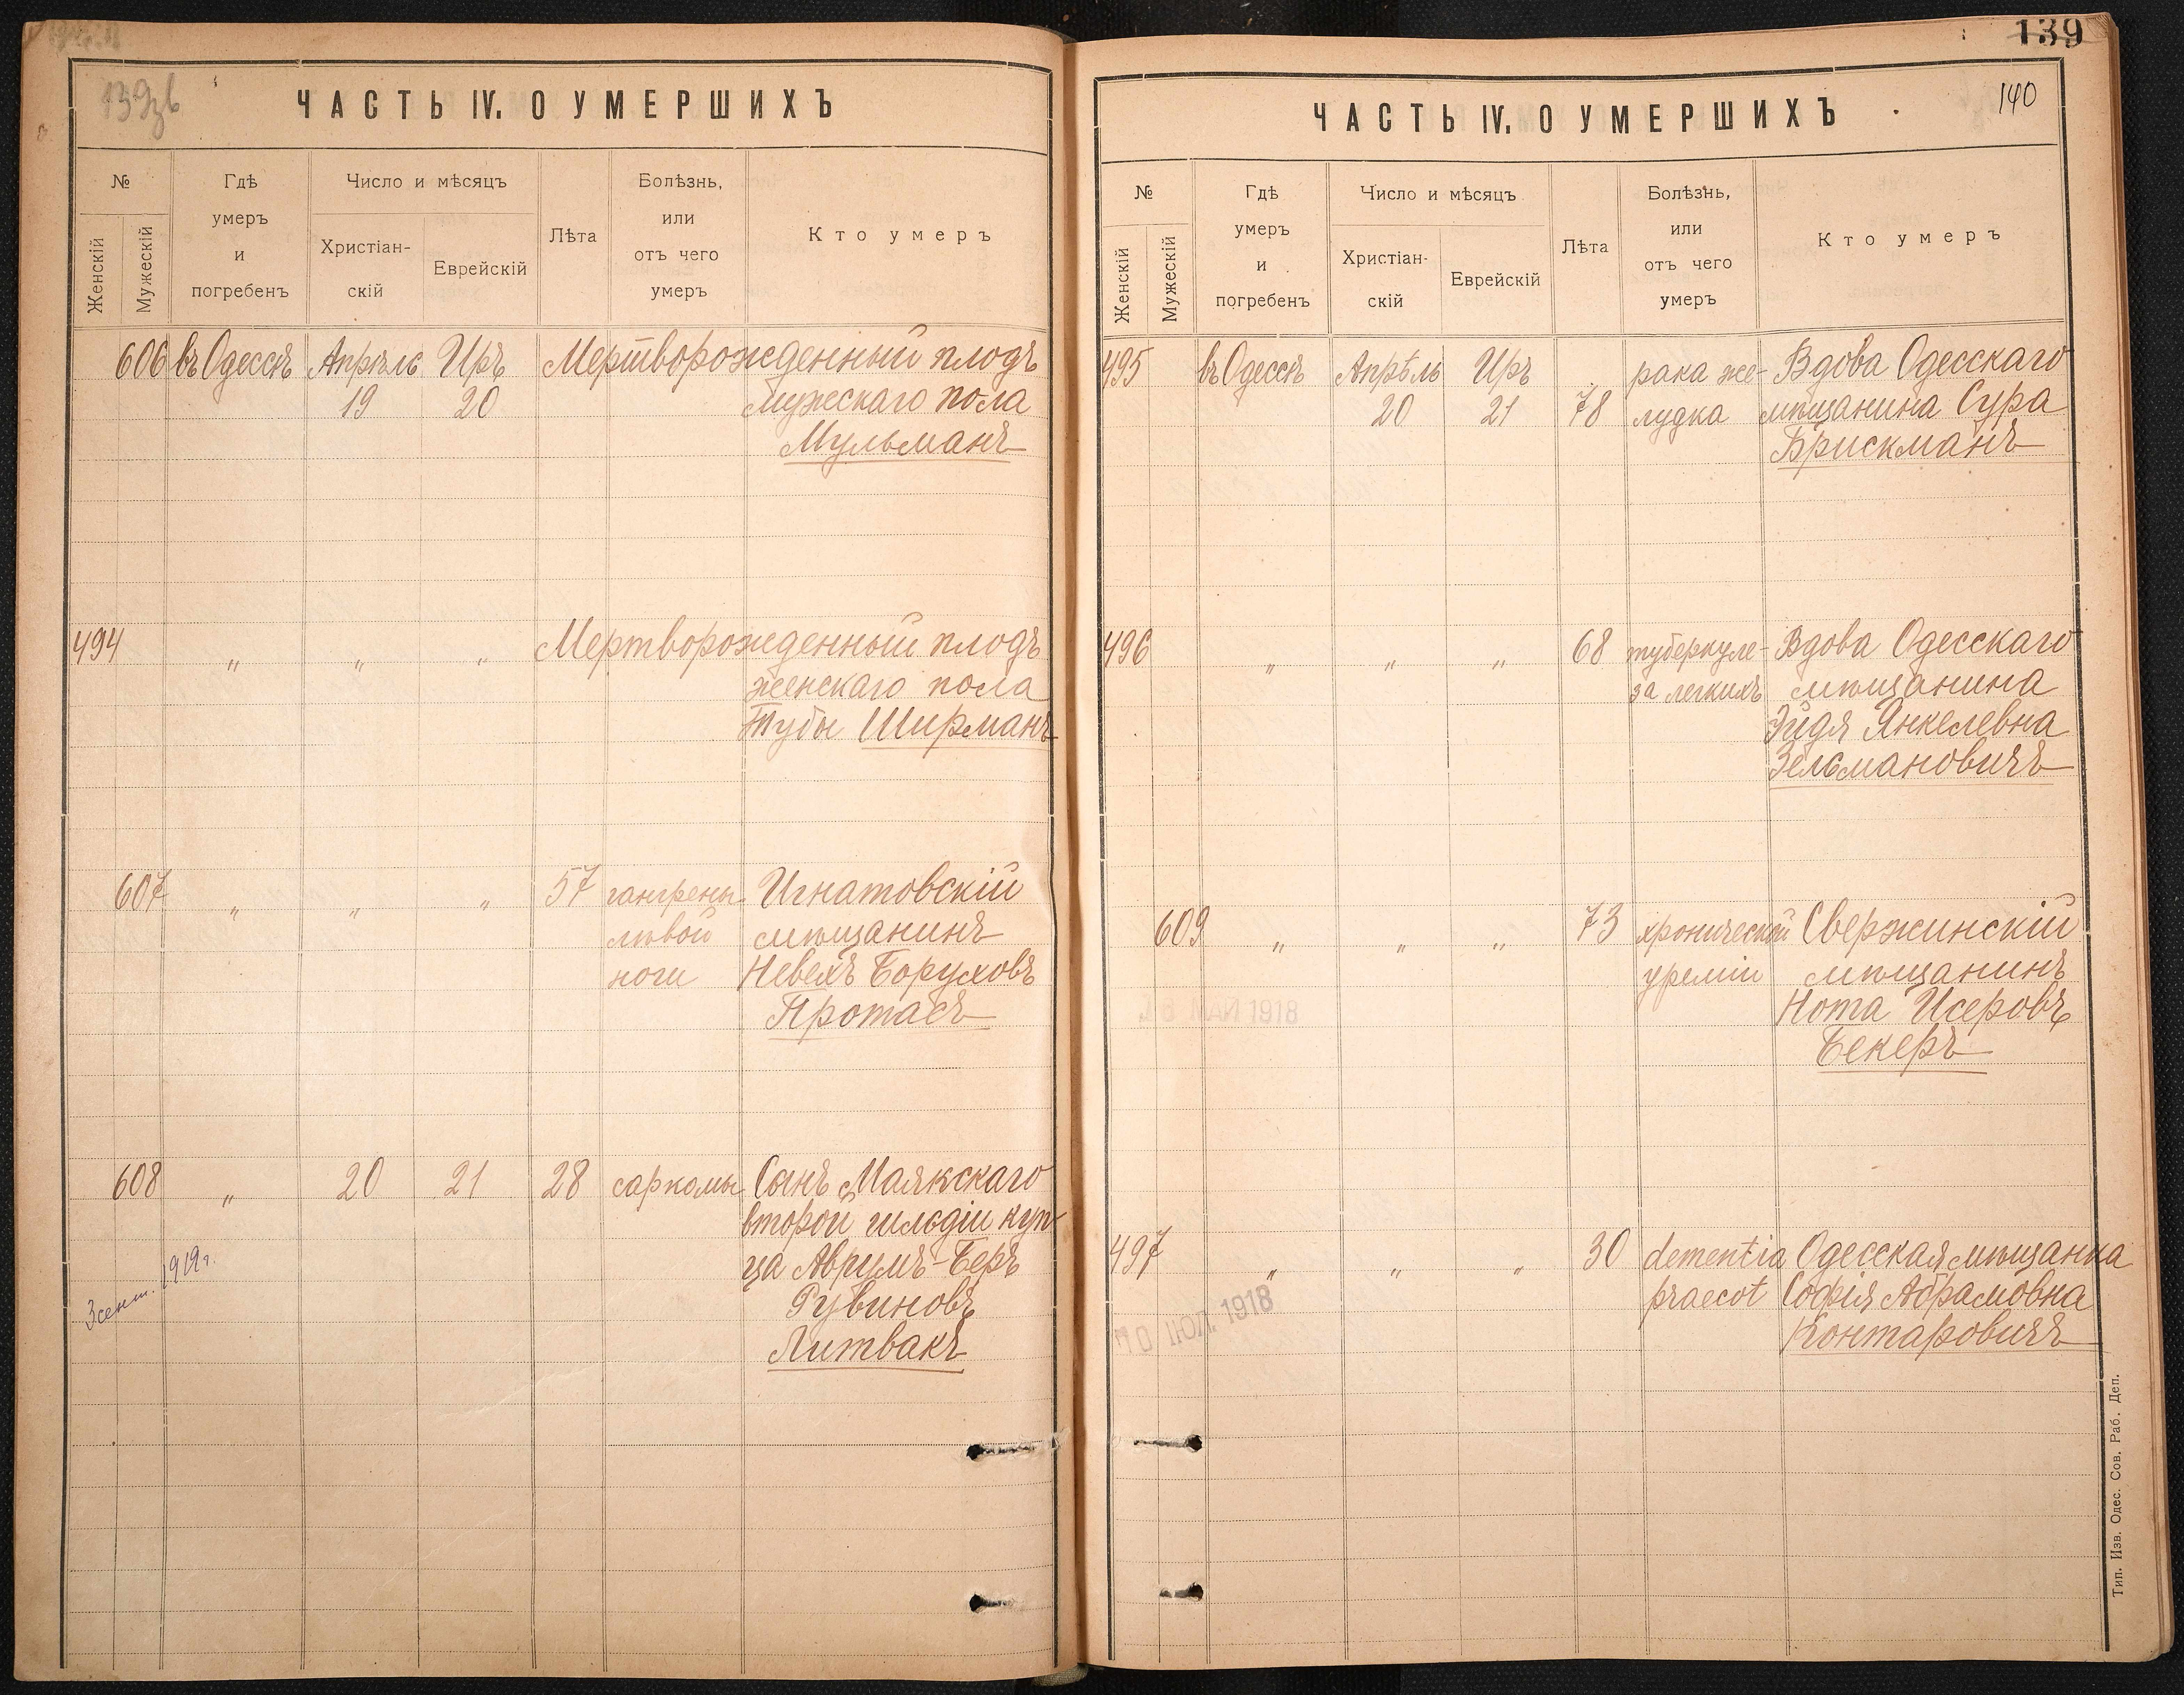 139зв
ЧАСТЬ IV. О УМЕРШИХЪ
№
Женскій
Мужескій
Гдѣ
умеръ
и
погребенъ
Число и мѣсяцъ
Христіан-
скій
Еврейскій
Лѣта
Болѣзнь,
или
отъ чего
умеръ
Кто умеръ
606 въ Одессѣ Апрѣль Иръ Мертворожденный плодъ
19 20 мужескаго пола
Мульманъ
494 " " " Мертворожденный плодъ
женскаго пола
Тубы Ширманъ
607 " " " 57 гангрены Игнатовскій
лѣвой мѣщанинъ
ноги Невехъ Боруховъ
Протасъ
608 " 20 21 28 саркомы Сынъ Маякскаго
второй гильдіи куп-
ца Аврумъ-Беръ
Рувиновъ
Литвакъ
3 сент. 1919 г.
139
140
ЧАСТЬ IV. О УМЕРШИХЪ
№
Женскій
Мужескій
Гдѣ
умеръ
и
погребенъ
Число и мѣсяцъ
Христіан-
скій
Еврейскій
Лѣта
Болѣзнь,
или
отъ чего
умеръ
Кто умеръ
495 въ Одессѣ Апрѣль Иръ рака же- Вдова Одесскаго
20 21 78 лудка мѣщанина Сура
Брискманъ
496 " " " 68 туберкуле- Вдова Одесскаго
за легкихъ мѣщанина
Эйдя Янкелевна
Зельмановичъ
609 " " " 73 хронической Свержинскій
уреміи мѣщанинъ
Нота Исеровъ
Бекеръ
МАЙ 1918
497 " " " 30 dementia Одесская мѣщанка
praecot Софія Абрамовна
Контаровичъ
10 ІЮЛ. 1918
Тип. Изв. Одес. Сов. Раб. Деп.